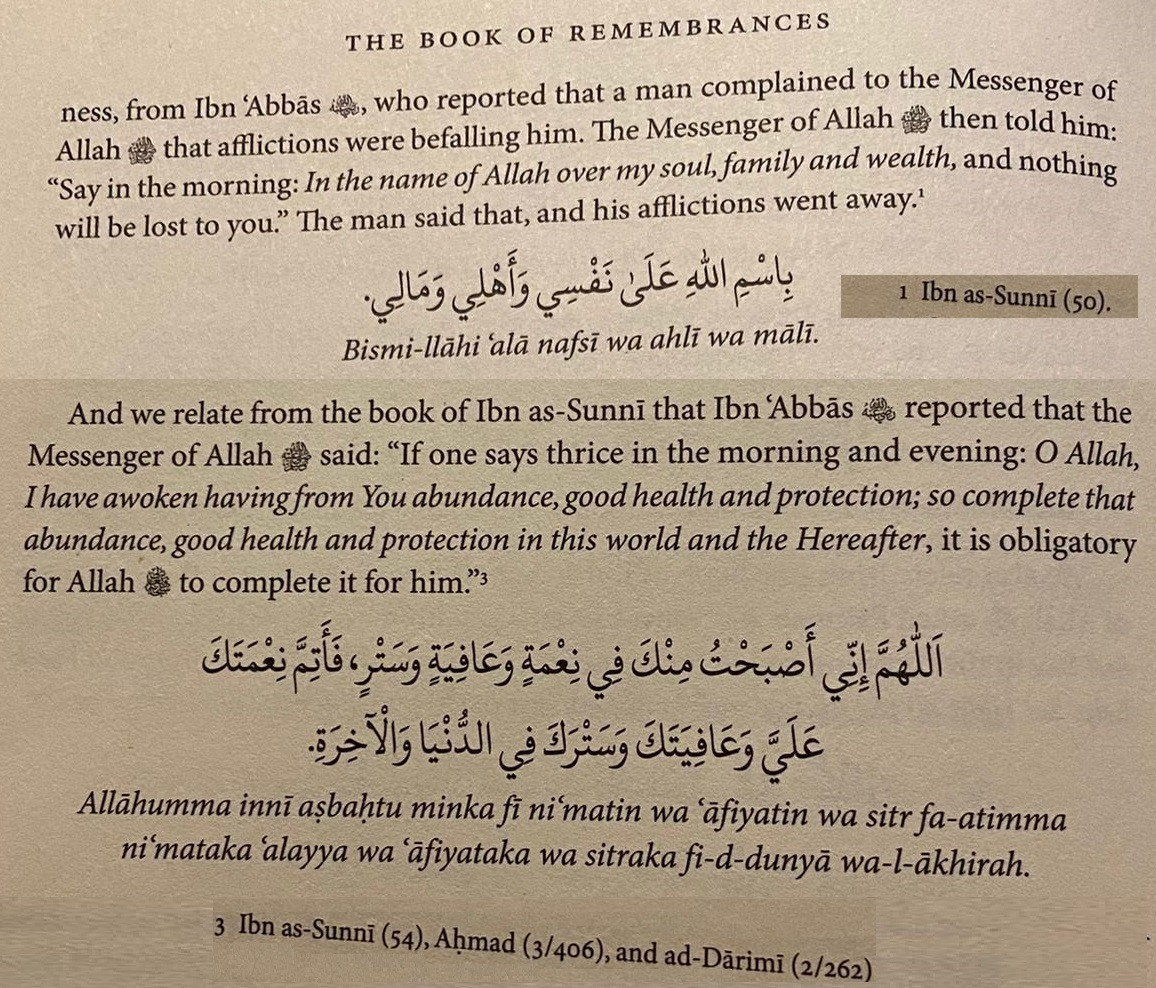 THE BOOK OF REMEMBRANCES
ness, from Ibn ‘Abbās, who reported that a man complained to the Messenger of
Allah ﷺ that afflictions were befalling him. The Messenger of Allah ﷺ then told him:
“Say in the morning: In the name of Allah over my soul, family and wealth, and nothing
will be lost to you.” The man said that, and his afflictions went away.¹
بِاسْمِ اللهِ عَلَىٰ نَفْسِي وَأَهْلِي وَمَالِي.
1 Ibn as-Sunnī (50).
Bismi-llāhi ‘alā nafsī wa ahlī wa mālī.
And we relate from the book of Ibn as-Sunnī that Ibn ‘Abbās reported that the
Messenger of Allah ﷺ said: “If one says thrice in the morning and evening: O Allah,
I have awoken having from You abundance, good health and protection; so complete that
abundance, good health and protection in this world and the Hereafter, it is obligatory
for Allah ﷻ to complete it for him.”³
اَللّٰهُمَّ إِنِّي أَصْبَحْتُ مِنْكَ فِي نِعْمَةٍ وَعَافِيَةٍ وَسَتْرٍ، فَأَتِمَّ نِعْمَتَكَ
عَلَيَّ وَعَافِيَتَكَ وَسَتْرَكَ فِي الدُّنْيَا وَالْآخِرَةِ.
Allāhumma innī aṣbaḥtu minka fī ni‘matin wa ‘āfiyatin wa sitr fa-atimma
ni‘mataka ‘alayya wa ‘āfiyataka wa sitraka fi-d-dunyā wa-l-ākhirah.
3 Ibn as-Sunnī (54), Aḥmad (3/406), and ad-Dārimī (2/262)